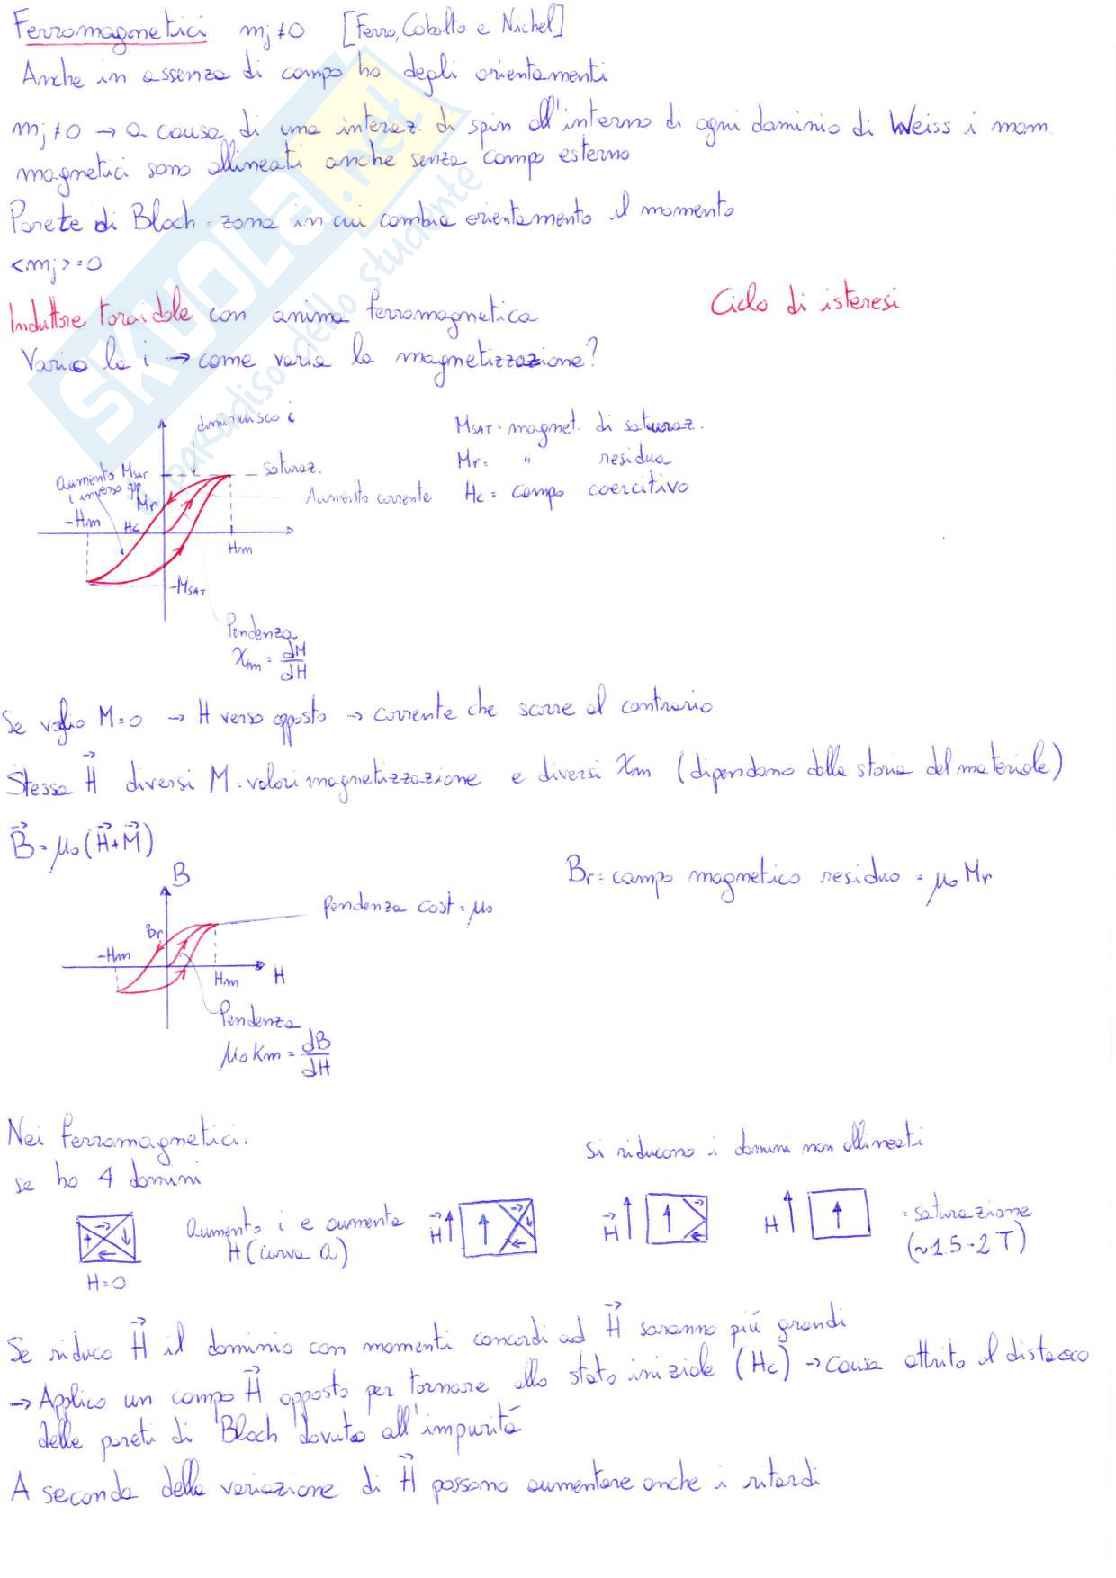 Ferromagnetici mj≠0 [Ferro, Cobalto e Nichel]
Anche in assenza di campo ho degli orientamenti
mj≠0 → a causa di una interaz. di spin all'interno di ogni dominio di Weiss i mom.
magnetici sono allineati anche senza campo esterno
Parete di Bloch = zona in cui cambia orientamento il momento
<mj>=0
Induttore toroidale con anima ferromagnetica
Ciclo di isteresi
Vario la i → come varia la magnetizzazione?
diminuisco i
Aumento i inverso
MSAT
saturaz.
Mr
Aumento corrente
-Hm
Hc
Hm
-MSAT
Pendenza
χm = dM/dH
MSAT = magnet. di saturaz.
Mr = " residua
Hc = campo coercitivo
Se voglio M=0 → H verso opposto → corrente che scorre al contrario
Stesso H⃗ diversi M = valori magnetizzazione e diversi χm (dipendono dalla storia del materiale)
B⃗ = μ0(H⃗+M⃗)
B
Br = campo magnetico residuo = μ0 Mr
Pendenza cost = μ0
Br
-Hm
Hm
H
Pendenza
μ0 Km = dB/dH
Nei ferromagnetici:
se ho 4 domini
Si riducono i domini non allineati
H=0
Aumento i e aumenta
H (curva a)
H⃗
H⃗
H
= saturazione
(~1.5-2 T)
Se riduco H⃗ il dominio con momenti concordi ad H⃗ saranno più grandi
→ Applico un campo H⃗ opposto per tornare allo stato iniziale (Hc) → causa attrito il distacco
delle pareti di Bloch dovuto all'impurità
A seconda della variazione di H⃗ possono aumentare anche i ritardi
SKUOLA.net
paradiso dello studente